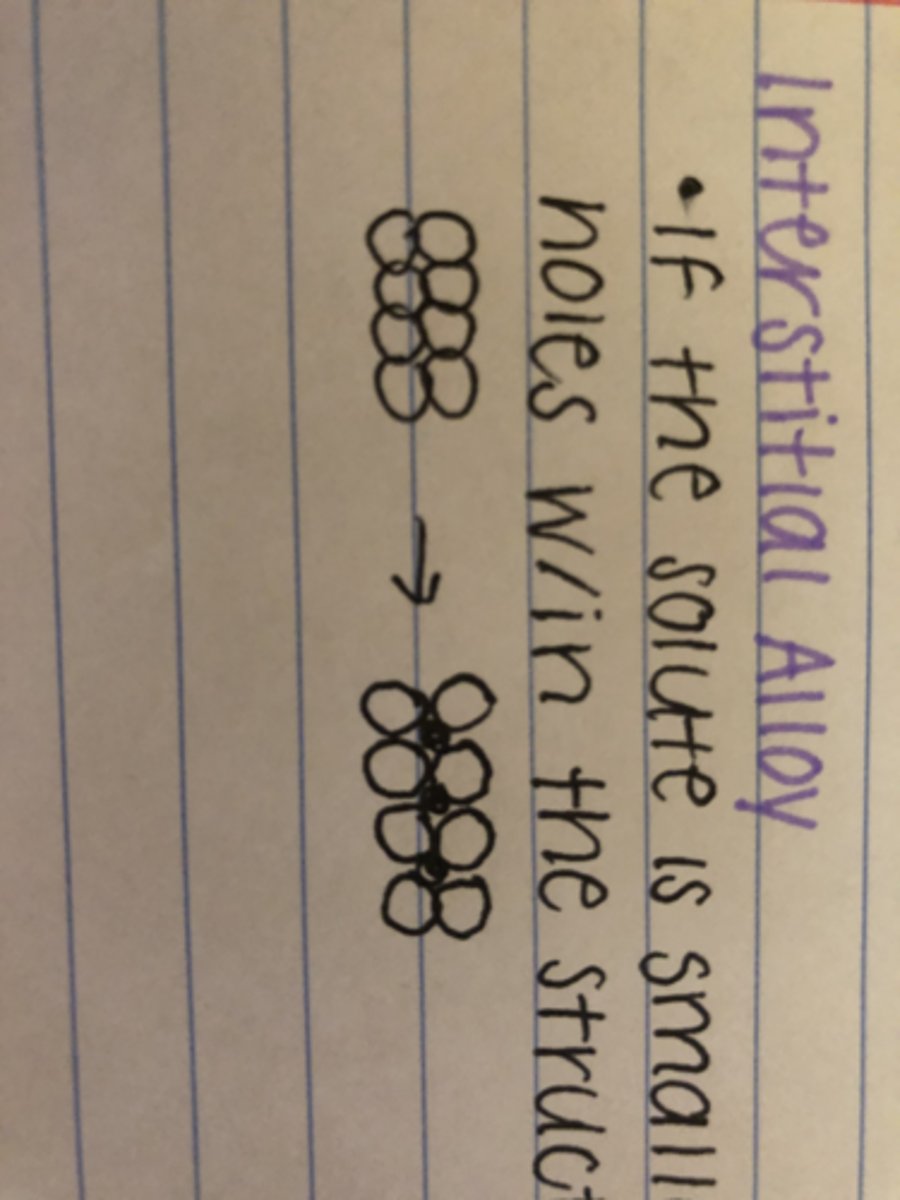 Interstitial Alloy
•If the solute is small
holes w/in the struct